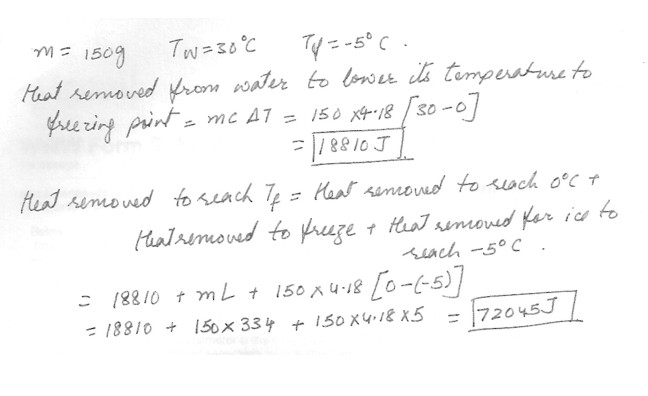 m = 150g Tw = 30°C Tf = -5°C.
Heat removed from water to lower its temperature to
freezing point = mc ΔT = 150 x4.18 [30-0]
= 18810 J
Heat removed to reach Tf = Heat removed to reach 0°C +
Heat removed to freeze + Heat removed for ice to
reach -5°C.
= 18810 + mL + 150 x 4.18 [0-(-5)]
= 18810 + 150x334 + 150 x4.18 x5 = 72045J